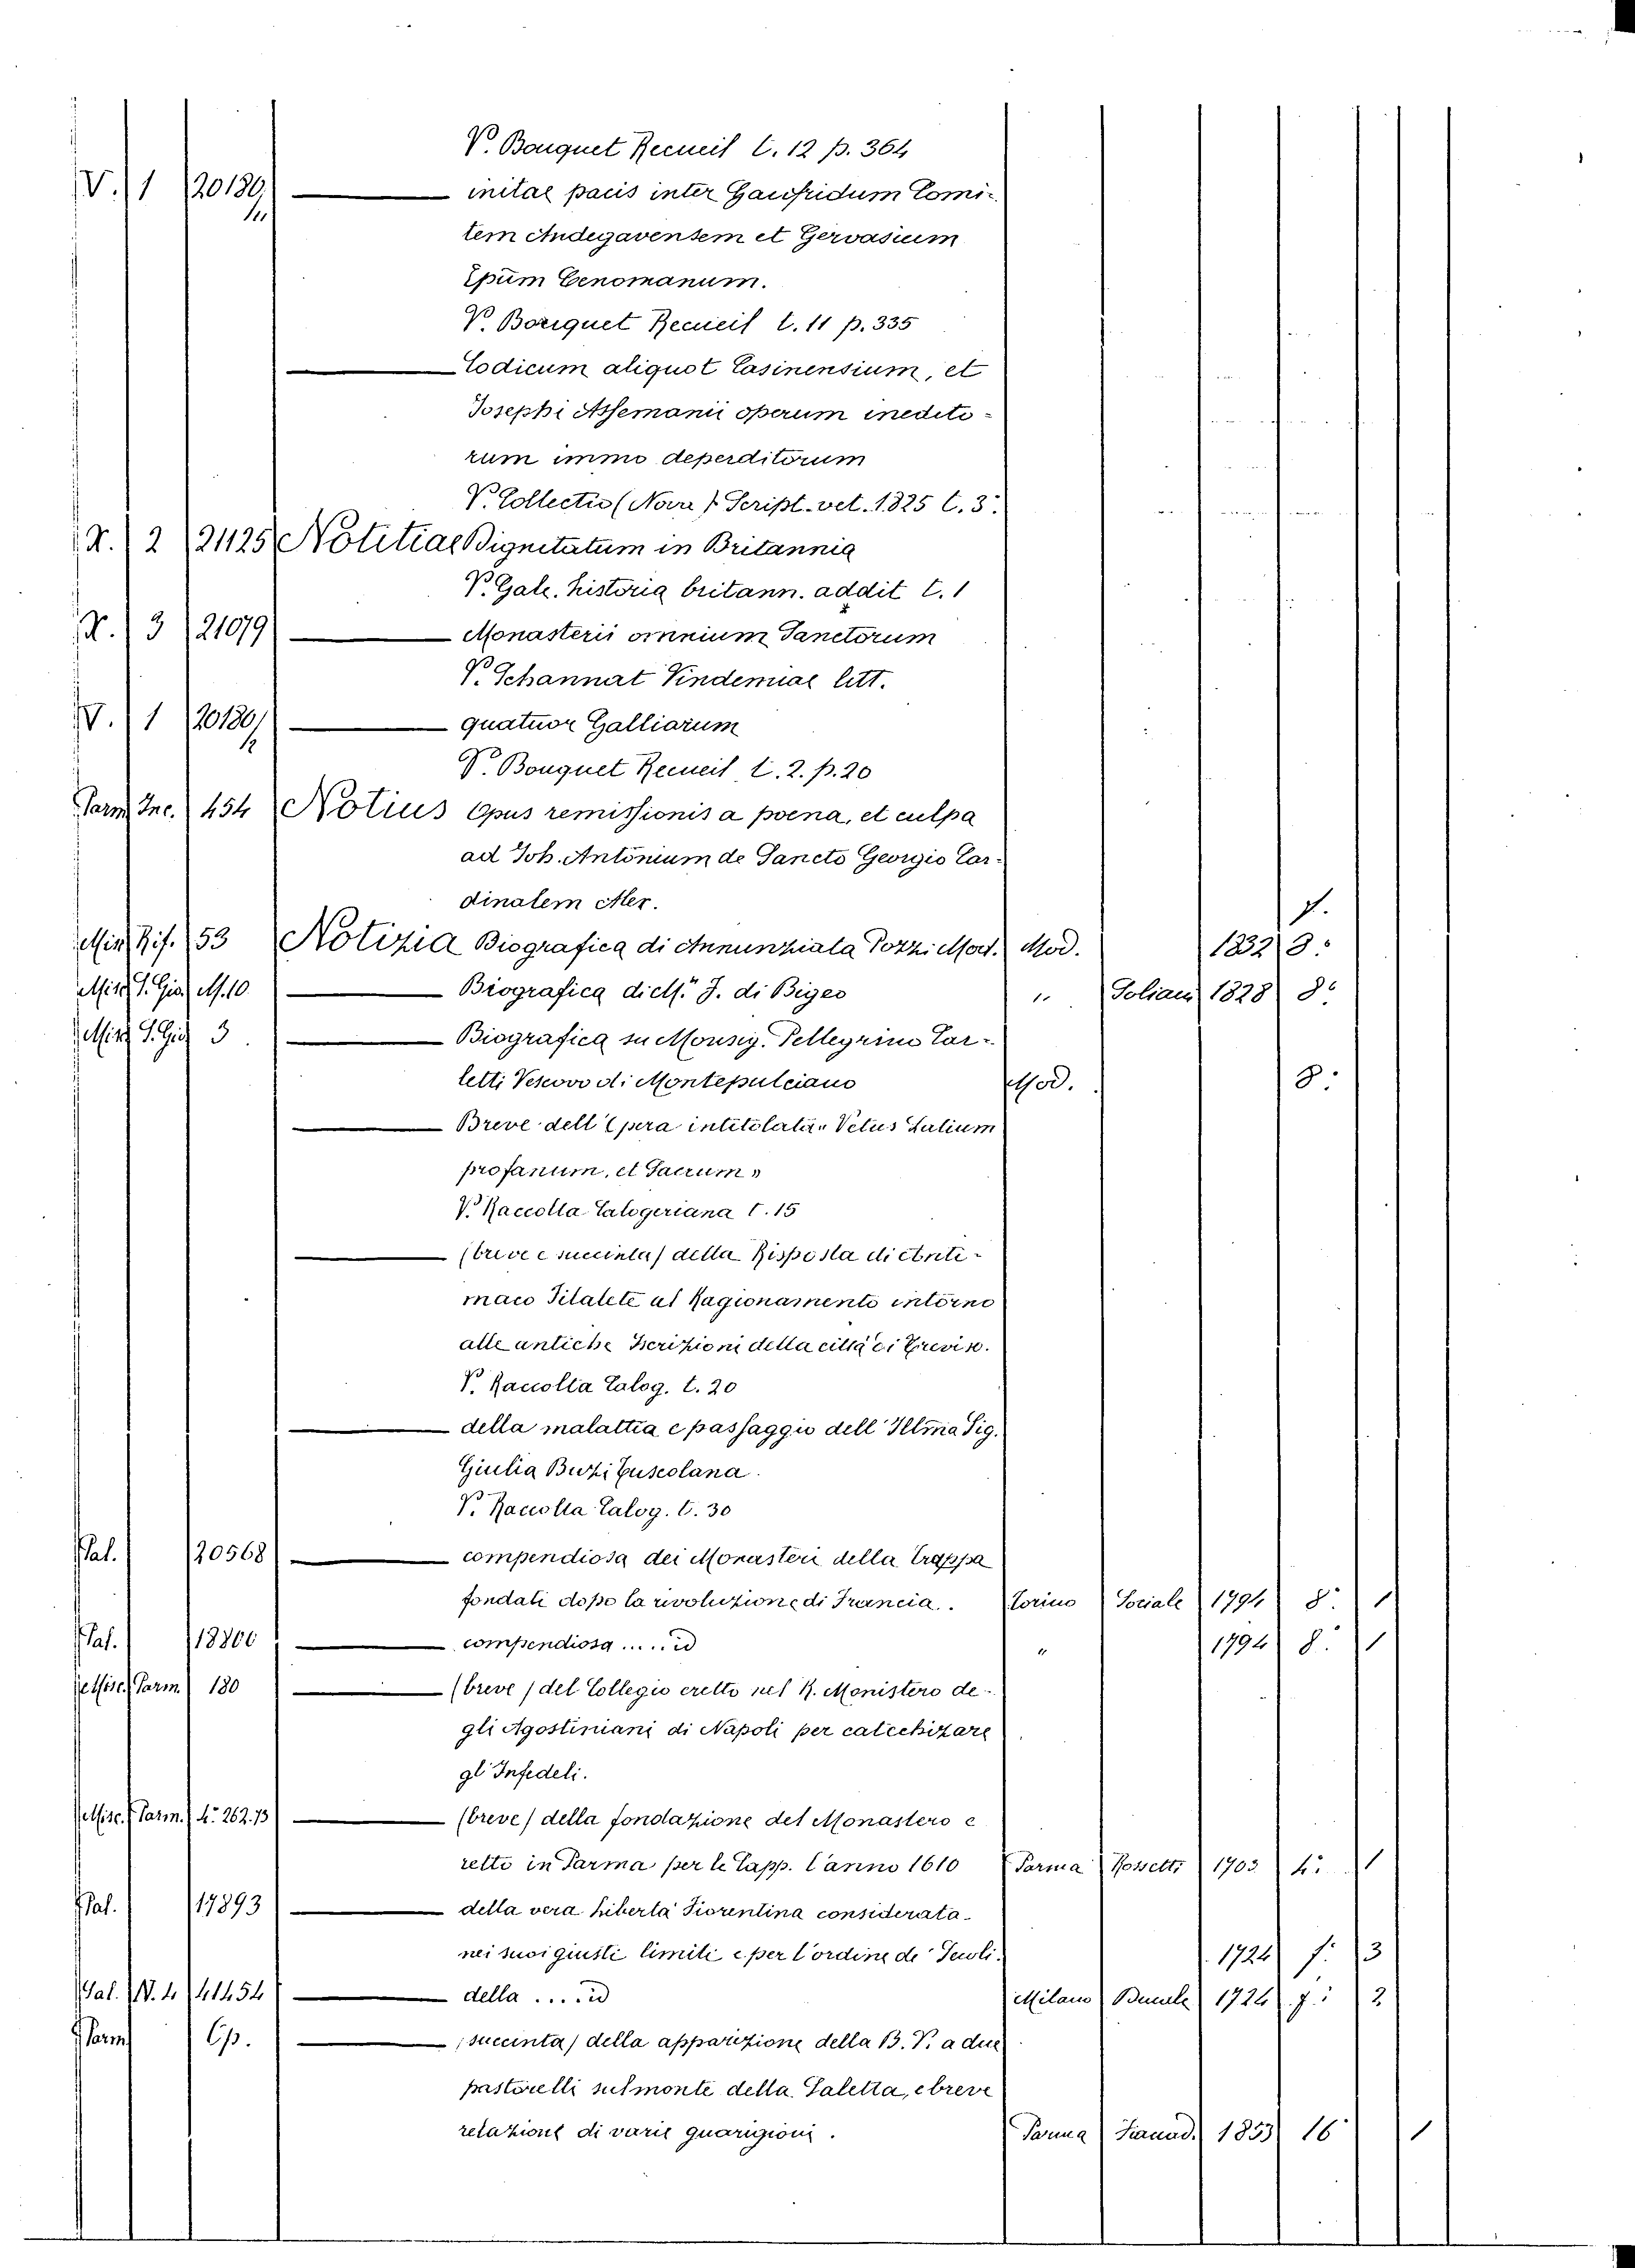 V. Bouquet Recueil t. 12 p. 364
V. 1 20180/11 — initae pacis inter Gaufridum Comi-
tem Andegavensem et Gervasium
Epum Cenomanum.
V. Bouquet Recueil t. 11 p. 335
— Codicum aliquot Casinensium, et
Josephi Assemanii operum inedito-
rum immo deperditorum
V. Collectio (Nova) Script. vet. 1825 t. 3.
X. 2 21125 Notitiae Dignitatum in Britannia
V. Gale. historia britann. addit t. 1
X. 3 21079 — Monasterii omnium Sanctorum
V. Schannat Vindemiae litt.
V. 1 20180/2 — quatuor Galliarum
V. Bouquet Recueil t. 2. p. 20
Parm. Inc. 454 Notius Opus remissionis a poena, et culpa
ad Joh. Antonium de Sancto Georgio Car-
dinalem Aler. 4.
Min Rif. 53 Notizia Biografica di Annunziata Pozzi Mort. Mod. 1832 8:
Misc S. Gio. M. 10 — Biografica di M.r J. di Biges " Soliani 1828 8:
Misc S. Gio 3 — Biografica su Monsig. Pellegrino Car-
letti Vescovo di Montepulciano Mod. 8:
— Breve dell'Opera intitolata "Vetus Latium
profanum, et Sacrum"
V. Raccolta Calogeriana t. 15
— (breve e succinta) della Risposta di Anti-
maco Filalete al Ragionamento intorno
alle antiche Iscrizioni della città di Treviso.
V. Raccolta Calog. t. 20
— della malattia e passaggio dell'Illma Sig.
Giulia Buzi Tuscolana.
V. Raccolta Calog. t. 30
Pal. 20568 — compendiosa dei Monasteri della Trappa
fondati dopo la rivoluzione di Francia. Torino Sociale 1794 8. 1
Pal. 18800 — compendiosa ..... id " 1794 8. 1
Misc. Parm. 180 — (breve) del Collegio eretto nel R. Monistero de-
gli Agostiniani di Napoli per catechizare
gl'Infedeli.
Misc. Parm. 4.º 262.13 — (breve) della fondazione del Monastero e
retto in Parma per le Capp. l'anno 1610 Parma Rossetti 1703 4: 1
Pal. 17893 — della vera Libertà Fiorentina considerata
nei suoi giusti limiti e per l'ordine de' Secoli. 1724 f: 3
Pal. N. 4 41454 — della ..... id Milano 1724 f: 2
Parm Op. — (succinta) della apparizione della B. V. a due
pastorelli sul monte della Saletta, e breve
relazione di varie guarigioni. Parma Fiaccad. 1853 16 1